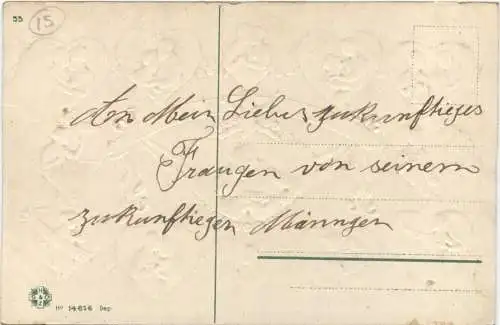 55
15
An Mein Liebes zukunftieges
Fraugen von seinem
zukunftiegen Männgen
No 14616 Dep.